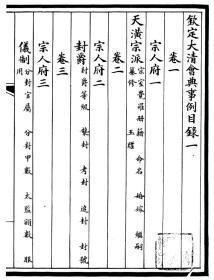 欽定大清會典事例目錄一
卷一
宗人府一
天潢宗派宗室覺羅冊籍 命名 婚嫁 繼嗣 纂修玉牒
卷二
宗人府二
封爵封爵等級 襲封 考封 追封 封號
卷三
宗人府三
儀制分封官屬 分封甲數 太監額數 服用